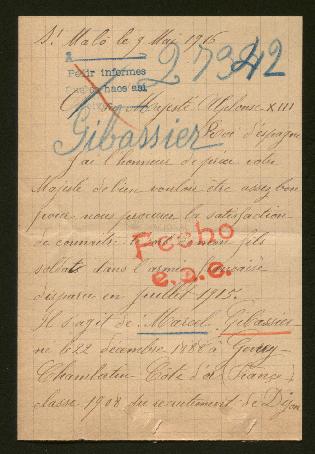 St Malo le 9 Mai 1916
27342
Pedir informes
Sa Majesté Alfonse XIII
Gibassier
Roi d'espagne
J'ai l'honneur de prier votre
Majesté de bien vouloir être assez bon
pour nous procurer la satisfaction
de connaitre le sort de mon fils
soldat dans l'armée française
disparu en Juillet 1915.
Fecho
e.a.e.
Il s'agit de: Marcel Gibassier
né le 22 décembre 1888 à Gevrey-
Chambertin Côte d'or (France)
classe 1908 du recrutement de Dijon